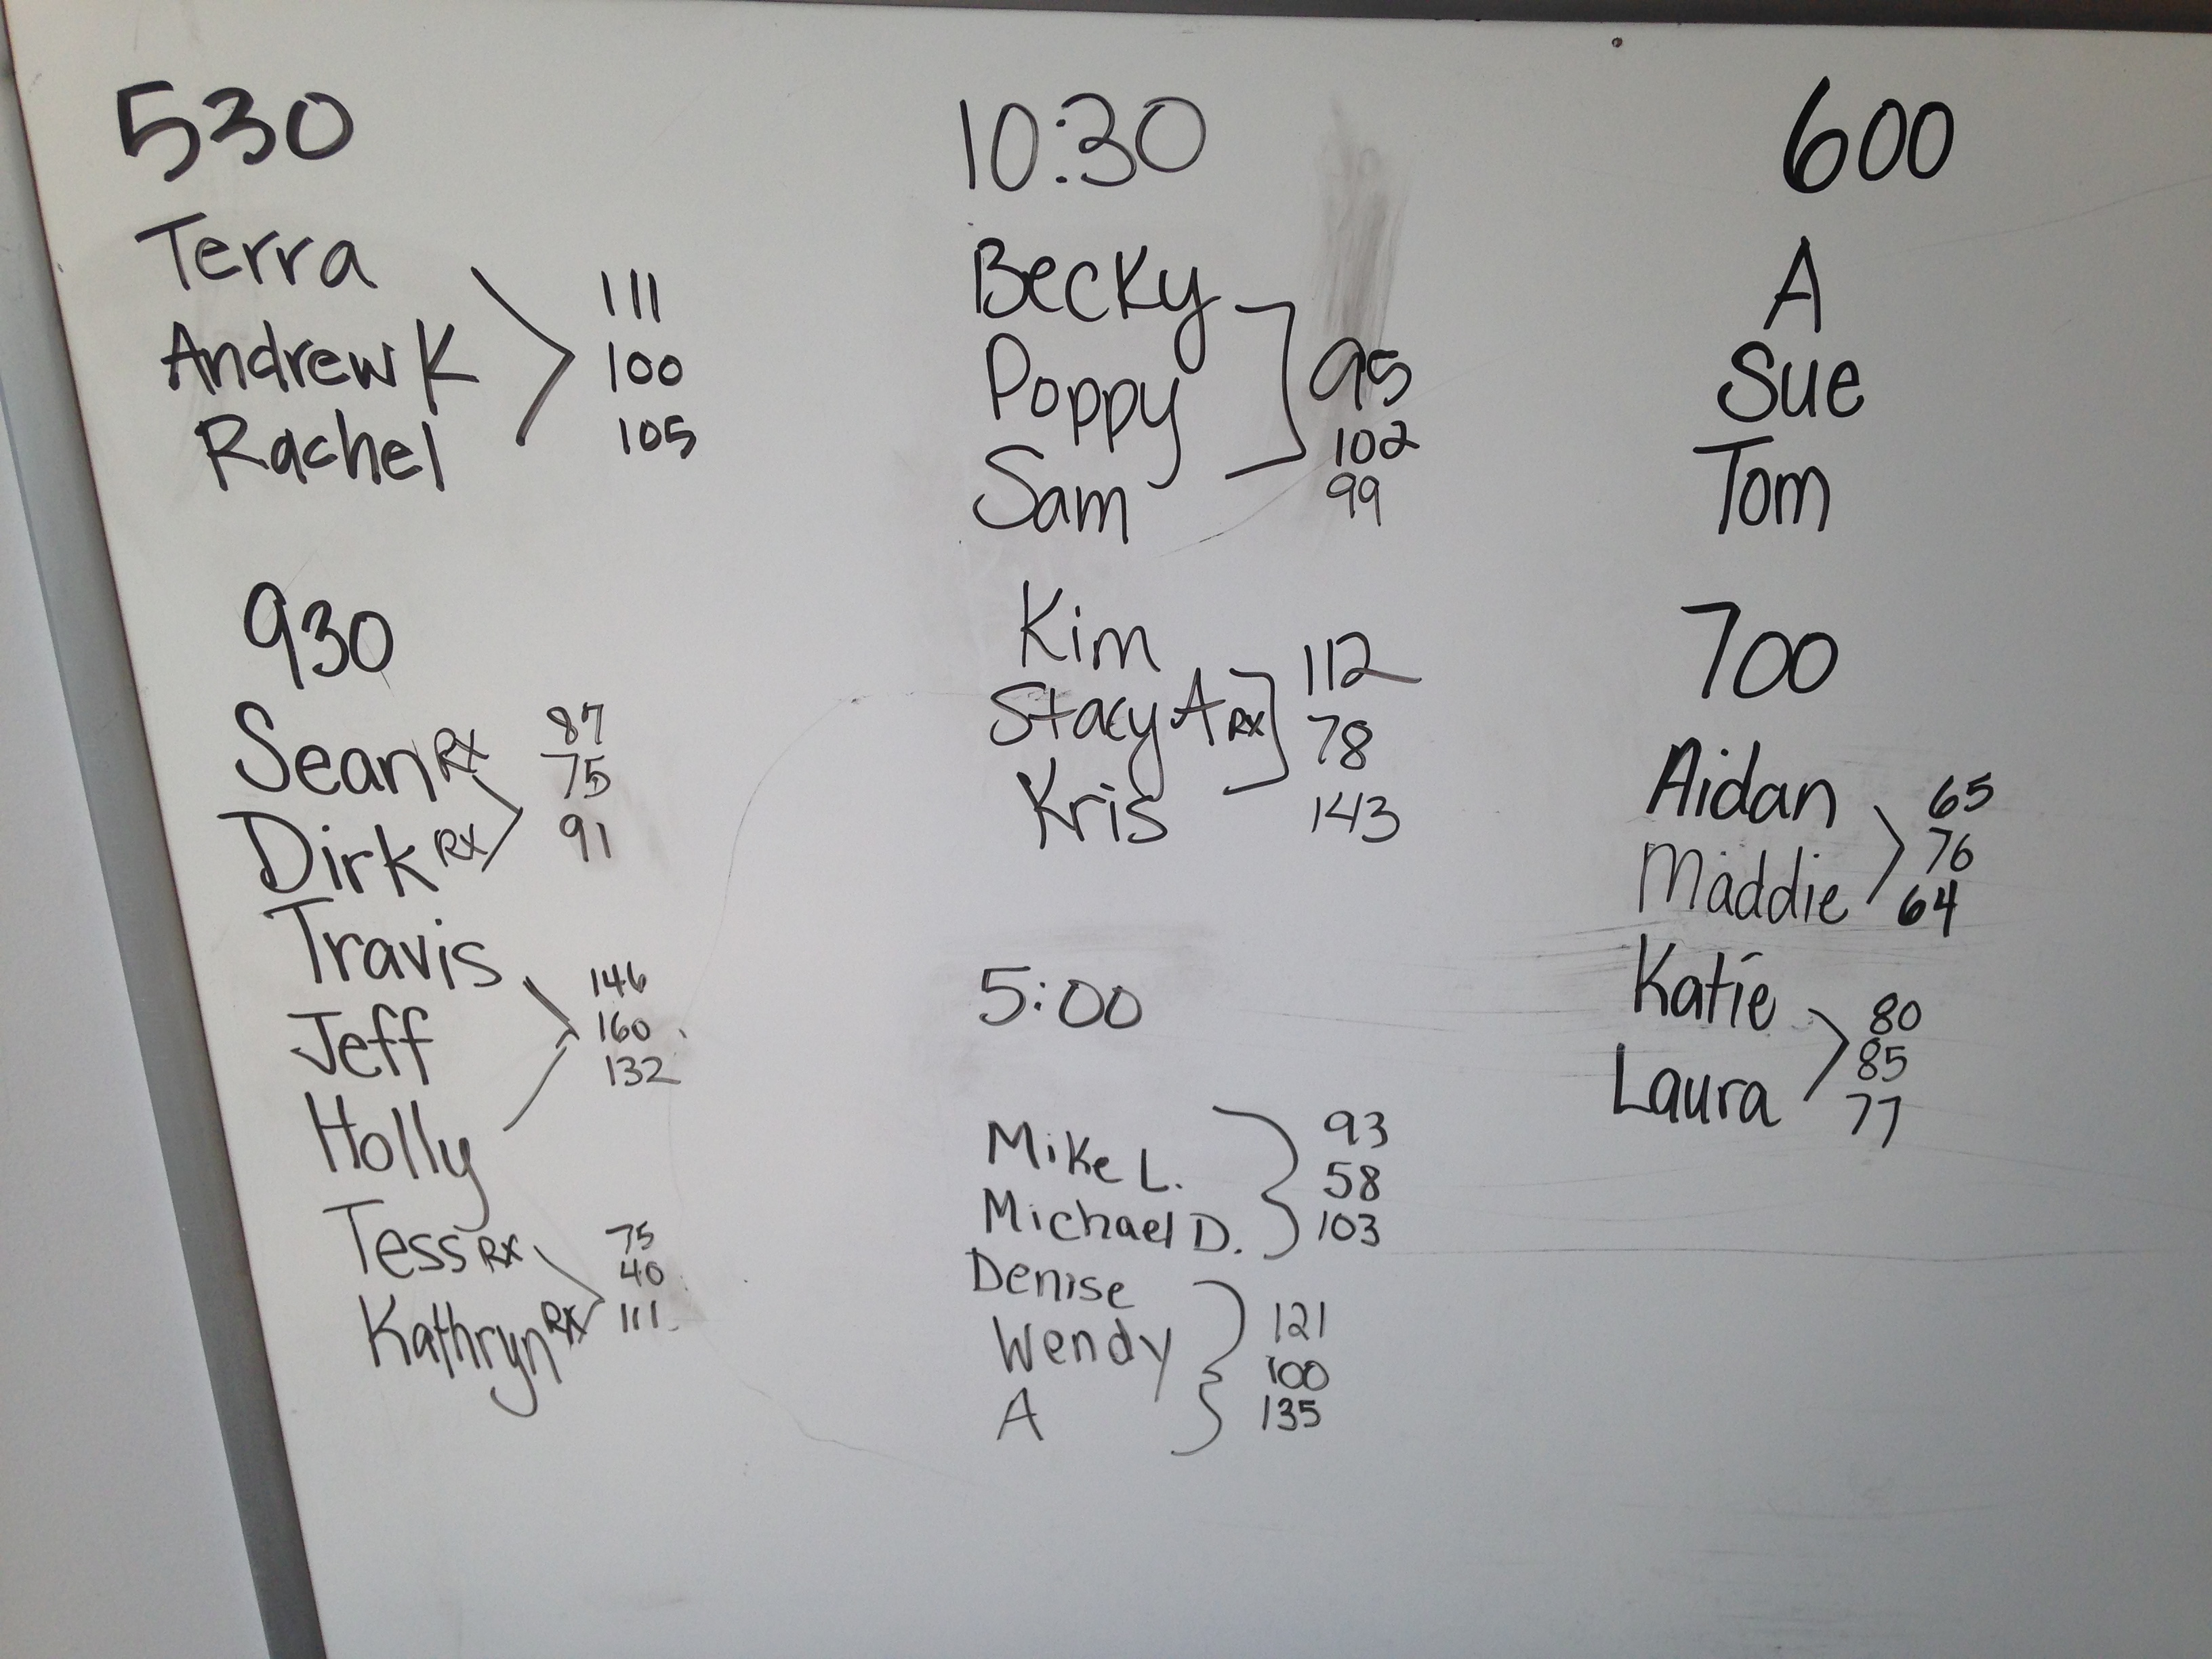 530
Terra
Andrew K
Rachel
111
100
105
930
Sean RX
Dirk RX
87
75
91
Travis
Jeff
Holly
146
160
132
Tess RX
Kathryn RX
75
40
111
10:30
Becky
Poppy
Sam
95
102
99
Kim
Stacy A RX
Kris
112
78
143
5:00
Mike L.
Michael D.
93
58
103
Denise
Wendy
A
121
100
135
600
A
Sue
Tom
700
Aidan
Maddie
65
76
64
Katie
Laura
80
85
77